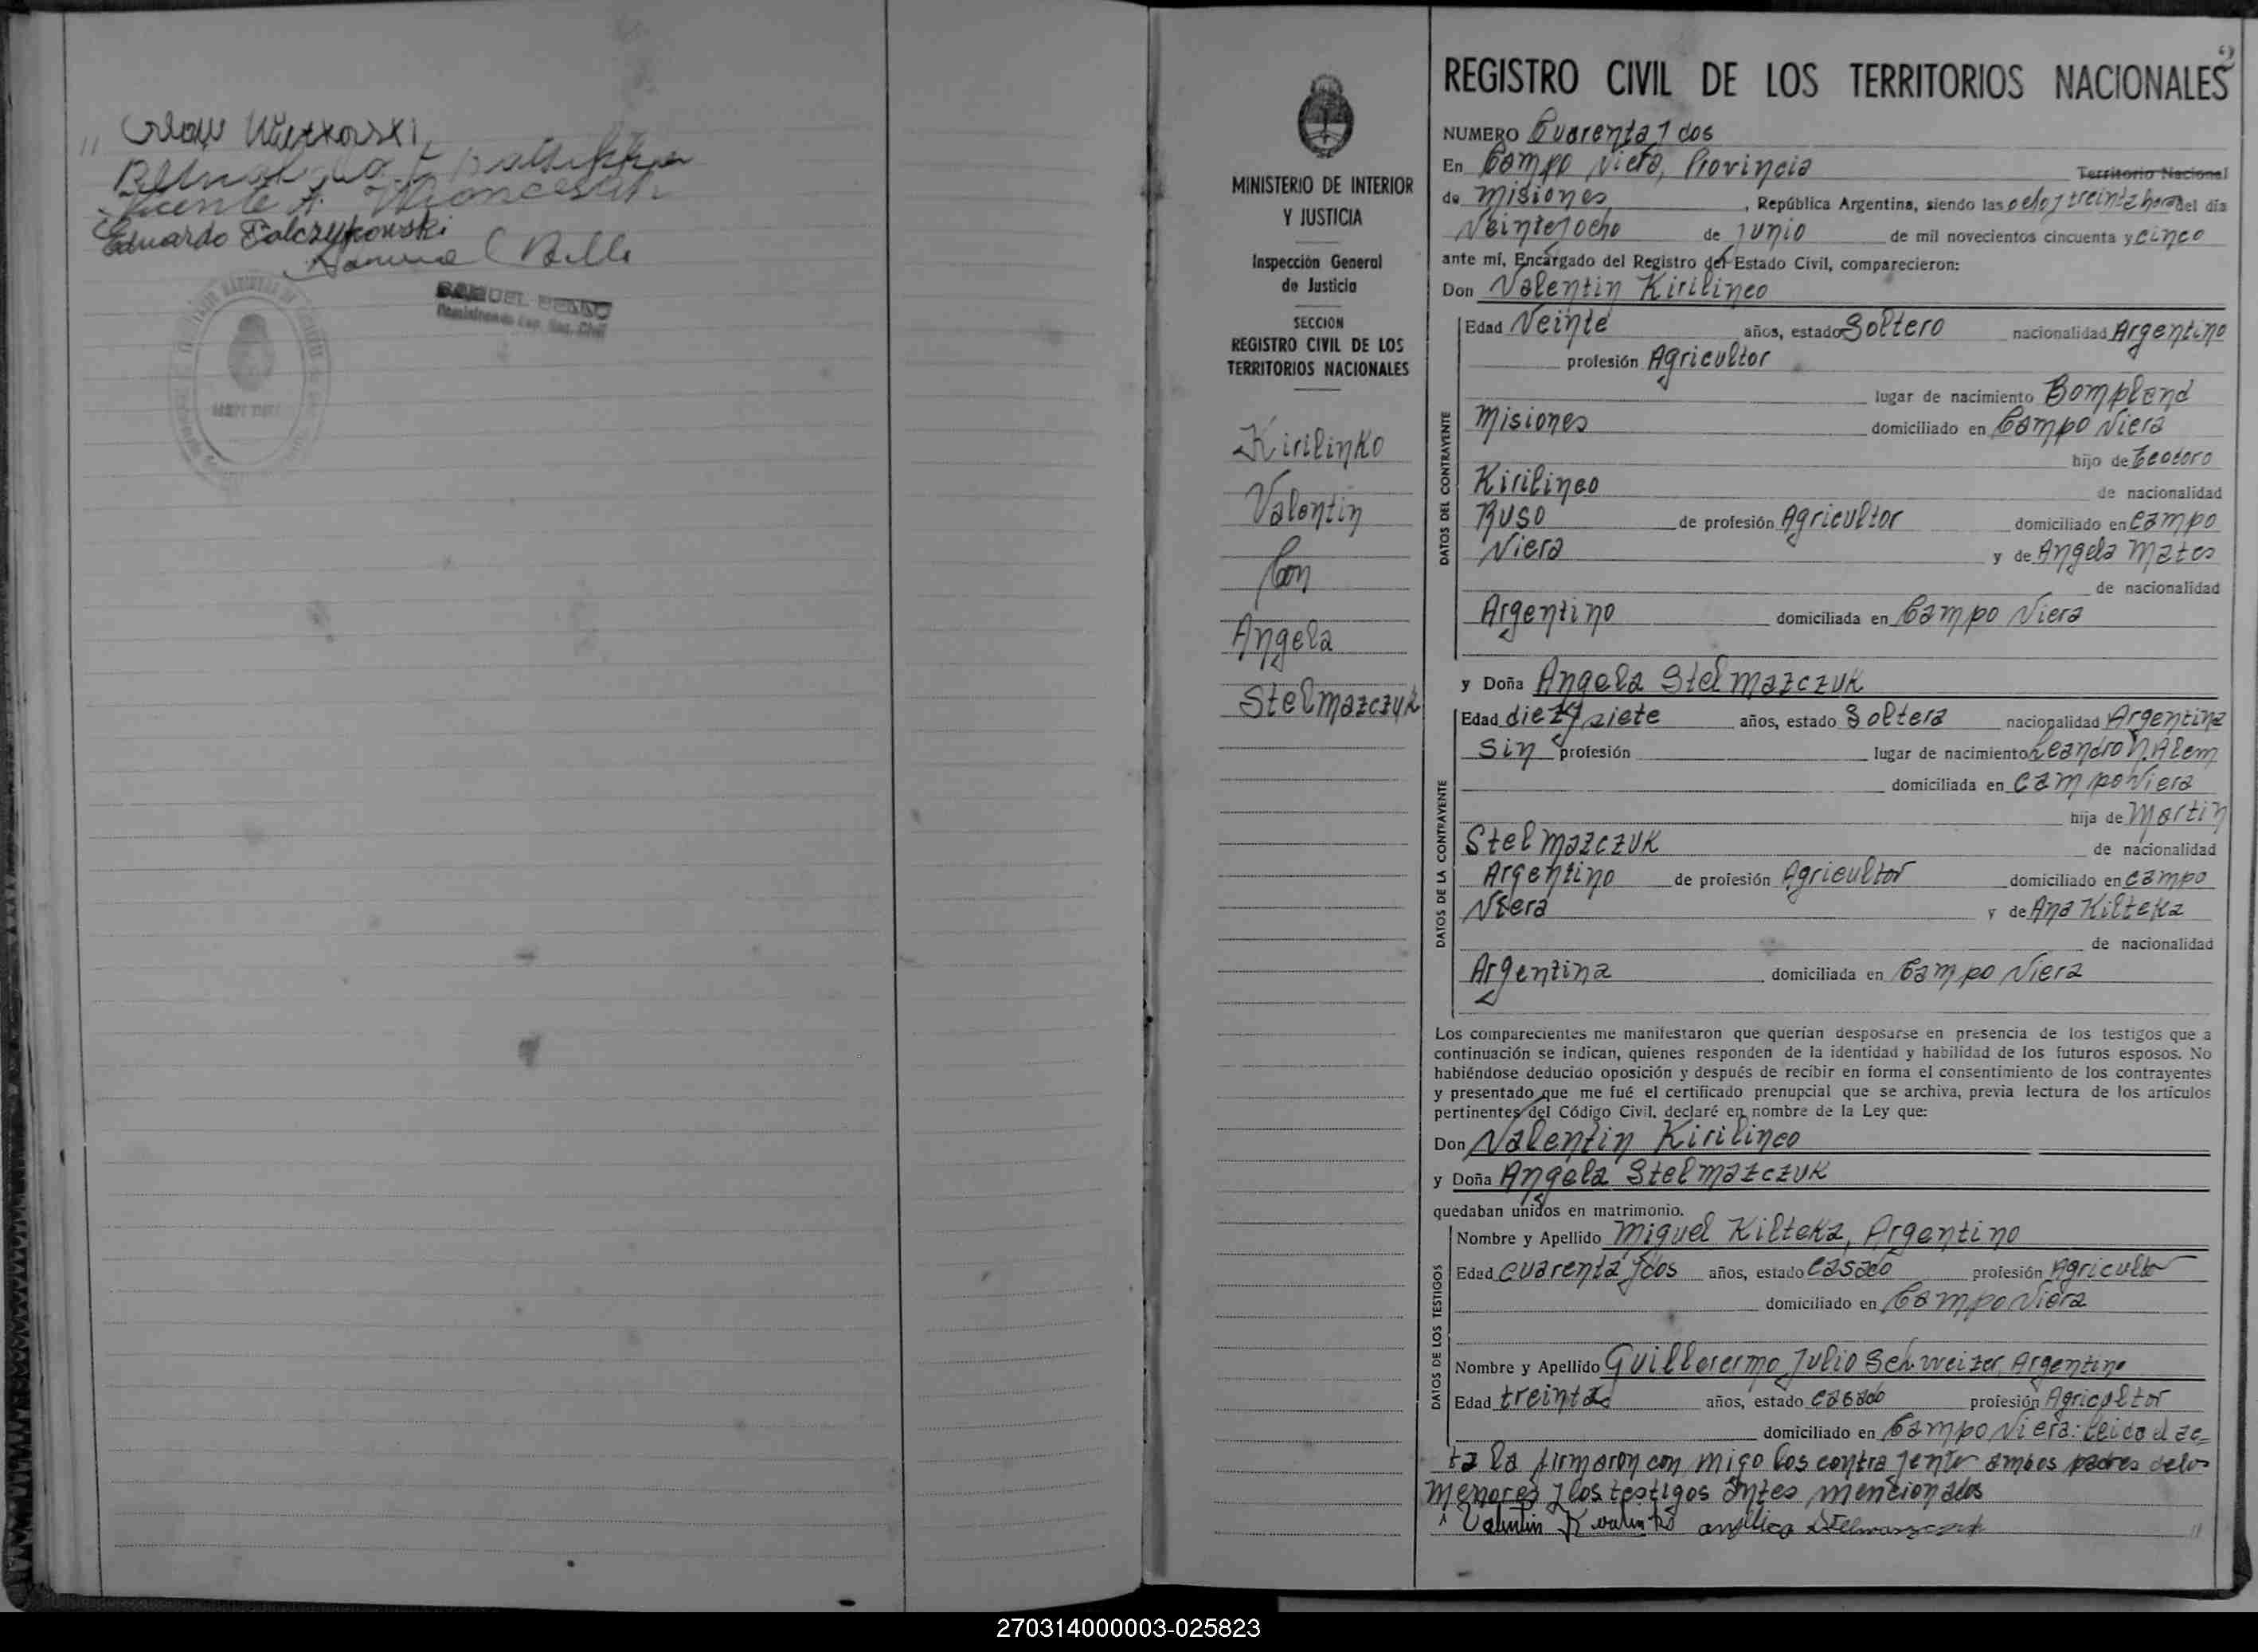 Eduardo Falczykowski
SAMUEL
2
REGISTRO CIVIL DE LOS TERRITORIOS NACIONALES
MINISTERIO DE INTERIOR
Y JUSTICIA
Inspección General
de Justicia
SECCION
REGISTRO CIVIL DE LOS
TERRITORIOS NACIONALES
Kirilinko
Valentin
Con
Angela
Stelmazczuk
NUMERO Cuarenta y dos
En Campo Viera, Provincia Territorio Nacional
de Misiones, República Argentina, siendo las ocho y treinta horas del día
Veinte y ocho de junio de mil novecientos cincuenta y cinco
ante mí, Encargado del Registro del Estado Civil, comparecieron:
Don Valentin Kirilinco
DATOS DEL CONTRAYENTE
Edad Veinte años, estado Soltero nacionalidad Argentino
profesión Agricultor
lugar de nacimiento Bompland
Misiones domiciliado en Campo Viera
hijo de Teodoro
Kirilinco de nacionalidad
Ruso de profesión Agricultor domiciliado en Campo
Viera y de Angela Mates
de nacionalidad
Argentino domiciliada en Campo Viera
y Doña Angela Stelmazczuk
DATOS DE LA CONTRAYENTE
Edad diez y siete años, estado Soltera nacionalidad Argentina
Sin profesión lugar de nacimiento Leandro N. Alem
domiciliada en Campo Viera
hija de Martin
Stelmazczuk de nacionalidad
Argentino de profesión Agricultor domiciliado en Campo
Viera y de Ana Kilteka
de nacionalidad
Argentina domiciliada en Campo Viera
Los comparecientes me manifestaron que querían desposarse en presencia de los testigos que a
continuación se indican, quienes responden de la identidad y habilidad de los futuros esposos. No
habiéndose deducido oposición y después de recibir en forma el consentimiento de los contrayentes
y presentado que me fué el certificado prenupcial que se archiva, previa lectura de los artículos
pertinentes del Código Civil, declaré en nombre de la Ley que:
Don Valentin Kirilinco
y Doña Angela Stelmazczuk
quedaban unidos en matrimonio.
DATOS DE LOS TESTIGOS
Nombre y Apellido Miguel Kilteka, Argentino
Edad cuarenta y dos años, estado Casado profesión Agricultor
domiciliado en Campo Viera
Nombre y Apellido Guillerermo Julio Schweizer, Argentino
Edad treinta años, estado casado profesión Agricultor
domiciliado en Campo Viera: leida el ac=
ta la firmaron con migo los contrayente ambos padres de los
menores y los testigos antes mencionados
Valentin angélica
270314000003-025823